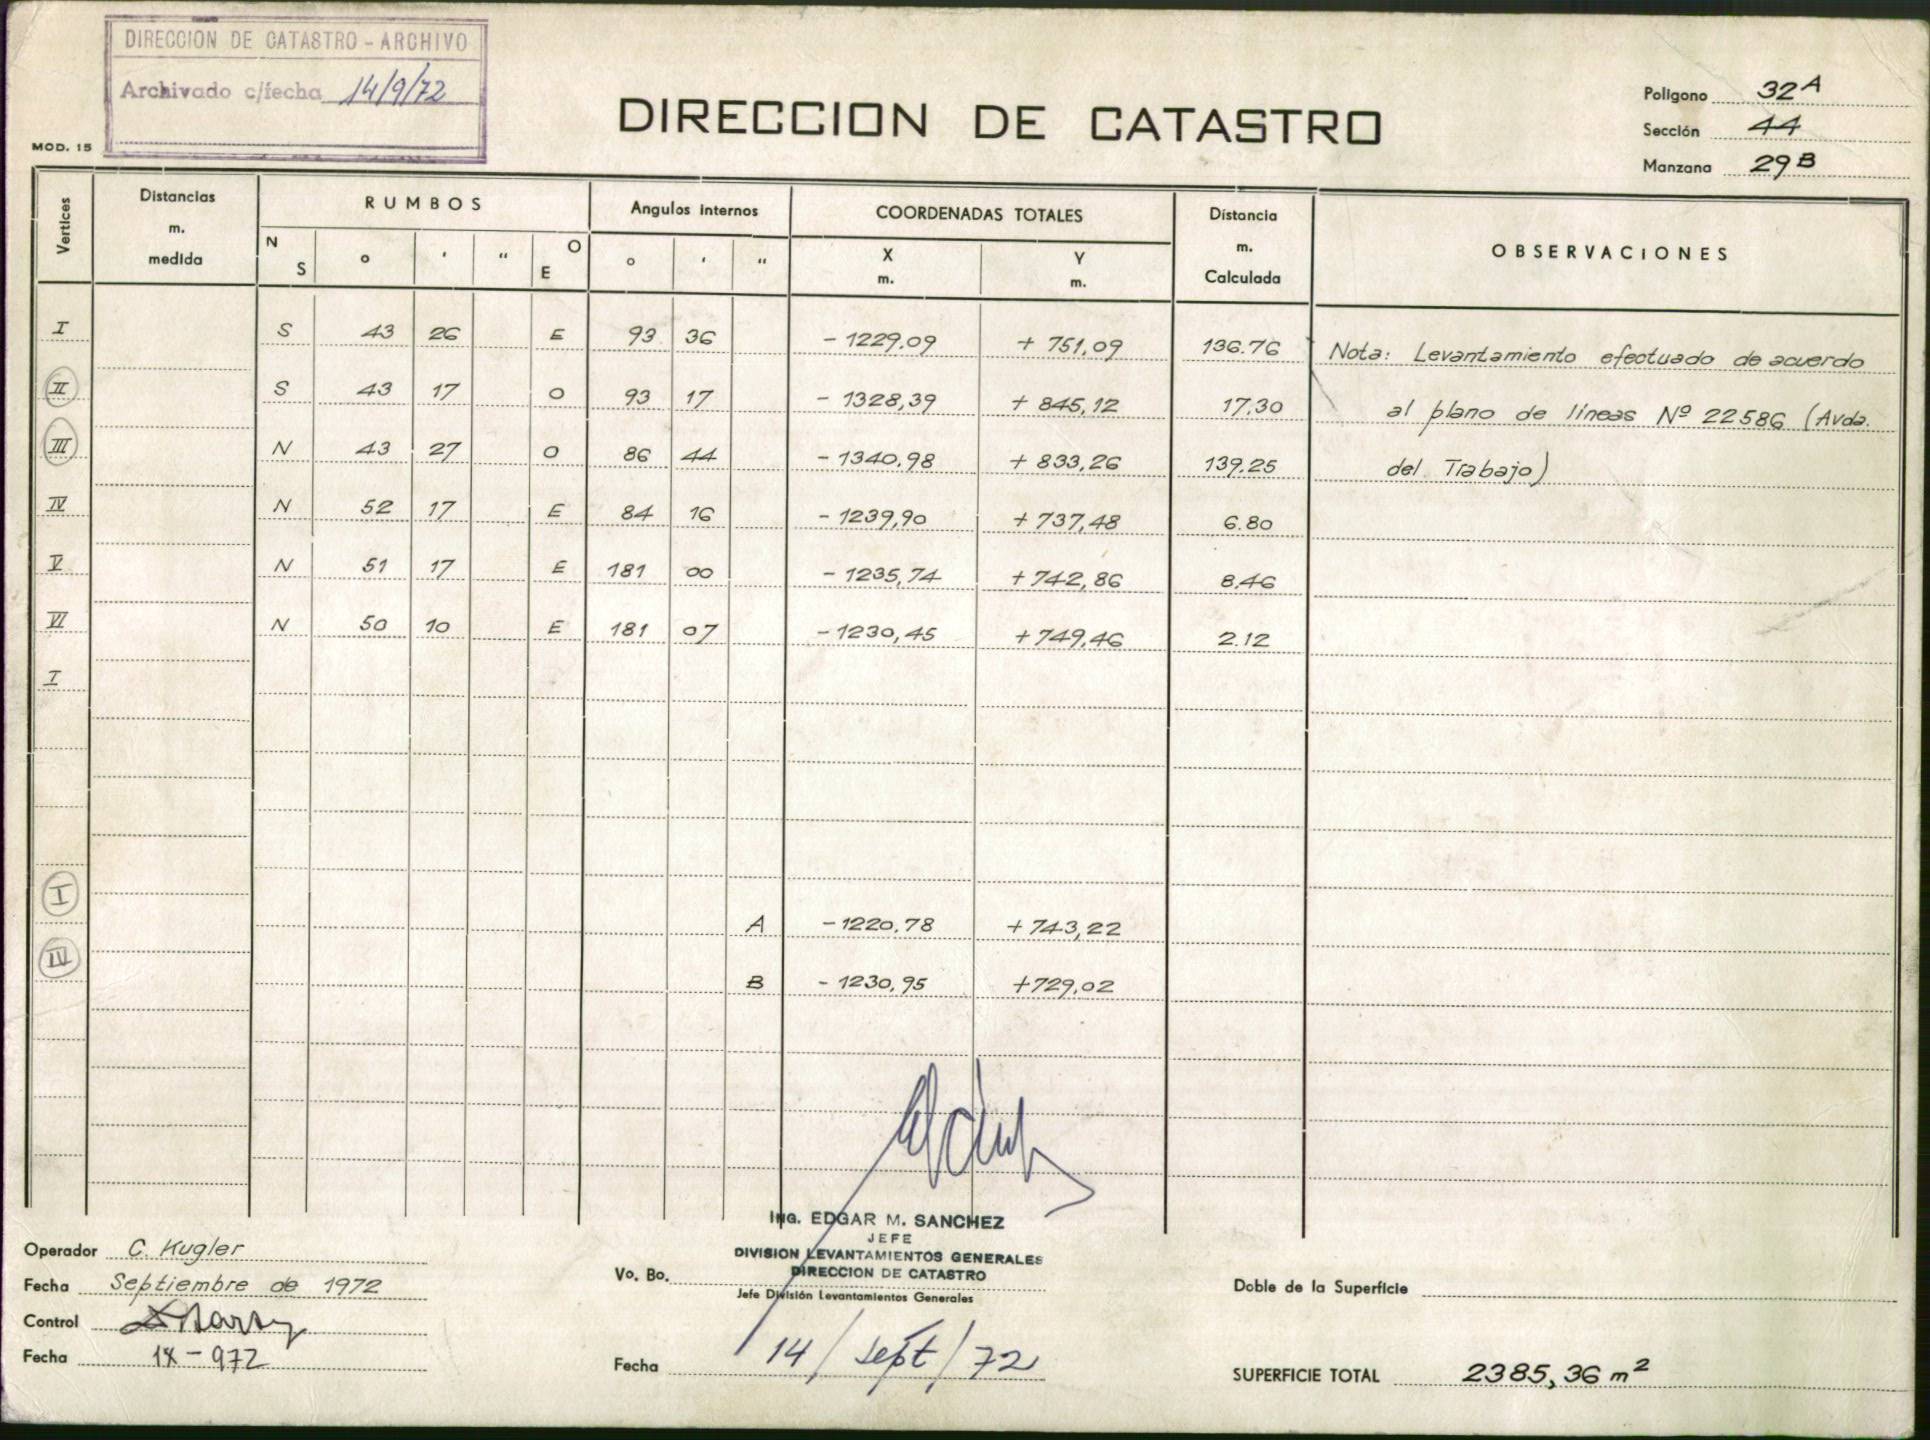 DIRECCION DE CATASTRO - ARCHIVO
Archivado c/fecha 14/9/72
MOD. 15
DIRECCION DE CATASTRO
Poligono 32 A
Sección 44
Manzana 29 B
Vertices Distancias m. medida RUMBOS Angulos internos COORDENADAS TOTALES Distancia m. Calculada OBSERVACIONES
N S ° ' " O E ° ' " X m. Y m.
I S 43 26 E 93 36 - 1229.09 + 751,09 136.76 Nota: Levantamiento efectuado de acuerdo
II S 43 17 O 93 17 - 1328,39 + 845,12 17.30 al plano de líneas Nº 22586 (Avda.
III N 43 27 O 86 44 - 1340,98 + 833,26 139.25 del Trabajo)
IV N 52 17 E 84 16 - 1239,90 + 737,48 6.80
V N 51 17 E 181 00 - 1235,74 + 742,86 8.46
VI N 50 10 E 181 07 - 1230,45 + 749,46 2.12
I
I A - 1220.78 + 743,22
IV B - 1230,95 +729,02
ING. EDGAR M. SANCHEZ
JEFE
DIVISION LEVANTAMIENTOS GENERALES
DIRECCION DE CATASTRO
Operador C. Kugler
Fecha Septiembre de 1972
Control
Fecha IX - 972
Vo. Bo.
Jefe División Levantamientos Generales
Fecha 14 / sept / 72
Doble de la Superficie
SUPERFICIE TOTAL 2385,36 m²